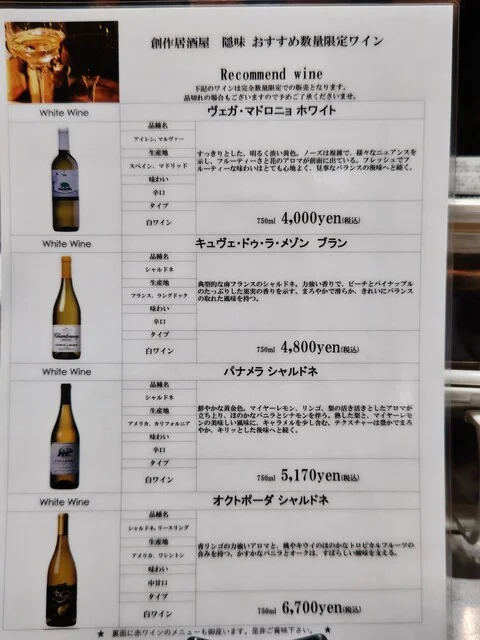 創作居酒屋 隠味 おすすめ数量限定ワイン
Recommend wine
下記のワインは完全数量限定での販売となります。
品切れの場合もございますので予めご了承くださいませ。
White Wine
ヴェガ・マドロニョ ホワイト
品種名
アイレン、マルヴァー
生産地
スペイン、マドリッド
味わい
辛口
タイプ
白ワイン
すっきりとした、明るく淡い黄色。ノーズは複雑で、様々なニュアンスを
示し、フルーティーさと花のアロマが前面に出ている。フレッシュでフ
ルーティーな味わいはとても心地よく、見事なバランスの後味へと続く。
750ml 4,000yen(税込)
White Wine
キュヴェ・ドゥ・ラ・メゾン ブラン
品種名
シャルドネ
生産地
フランス、ラングドック
味わい
辛口
タイプ
白ワイン
典型的な南フランスのシャルドネ。力強い香りで、ピーチとパイナップル
のたっぷりした果実の香りを示す。まろやかで滑らか、きれいにバランス
の取れた風味を持つ。
750ml 4,800yen(税込)
White Wine
パナメラ シャルドネ
品種名
シャルドネ
生産地
アメリカ、カリフォルニア
味わい
辛口
タイプ
白ワイン
鮮やかな黄金色。マイヤーレモン、リンゴ、梨の活き活きとしたアロマが
立ち上り、ほのかなバニラとシナモンを伴う。熟した梨と、マイヤーレモ
ンの美味しい風味に、キャラメルを少し含む。テクスチャーは豊かでまろ
やか、キリッとした後味へと続く。
750ml 5,170yen(税込)
White Wine
オクトポーダ シャルドネ
品種名
シャルドネ、リースリング
生産地
アメリカ、ワシントン
味わい
中甘口
タイプ
白ワイン
青リンゴの力強いアロマと、桃やキウイのほのかなトロピカルフルーツの
含みを持つ。かすかなバニラとオークは、すばらしい酸味を支える。
750ml 6,700yen(税込)
★ 裏面に赤ワインのメニューも御座います。是非ご賞味下さい。 ★